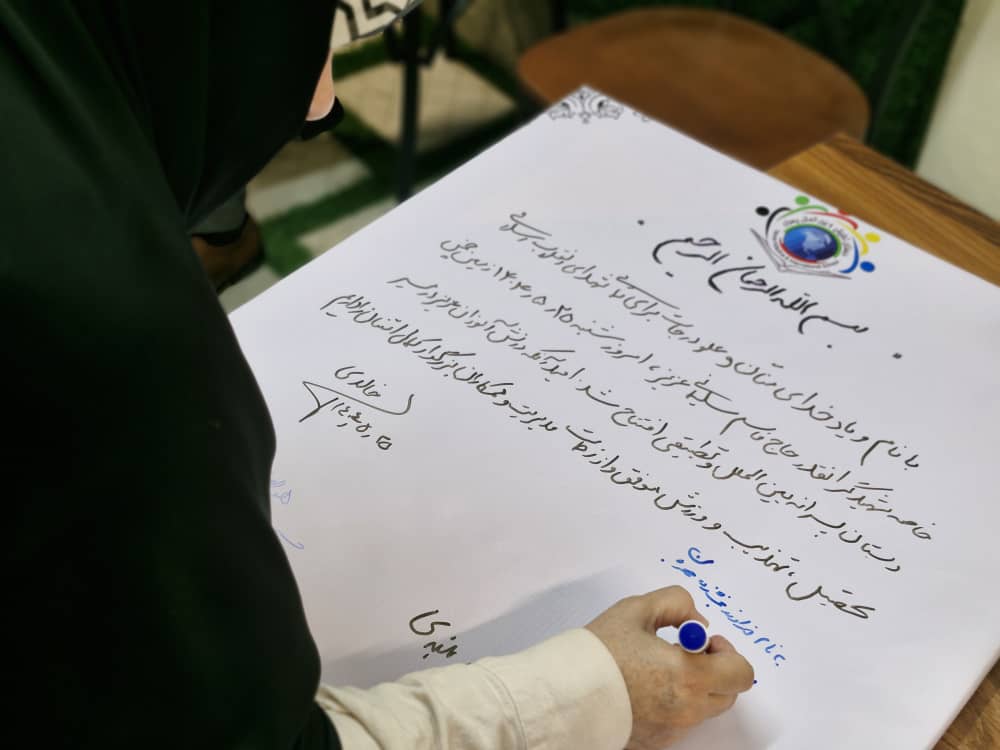 بسم الله الرحمان الرحیم
با نام و یاد خدای منان و علو درجات برای شهدای انقلاب اسلامی
خاصه شهید گرانقدر حاج قاسم سلیمانی عزیز، امروز شنبه ۱۴۰۴٫۵٫۲۵ زمین چمن
دبستان پسرانه بین الملل و تطبیقی افتتاح شد. امید آنکه دانش آموزان عزیز در مسیر
تحصیل، تهذیب و ورزش موفق و از زحمات مدیریت و همکاران بزرگوار کمال امتنان را داریم
خالدی
۱۴۰۴٫۵٫۲۵
به نام خداوند